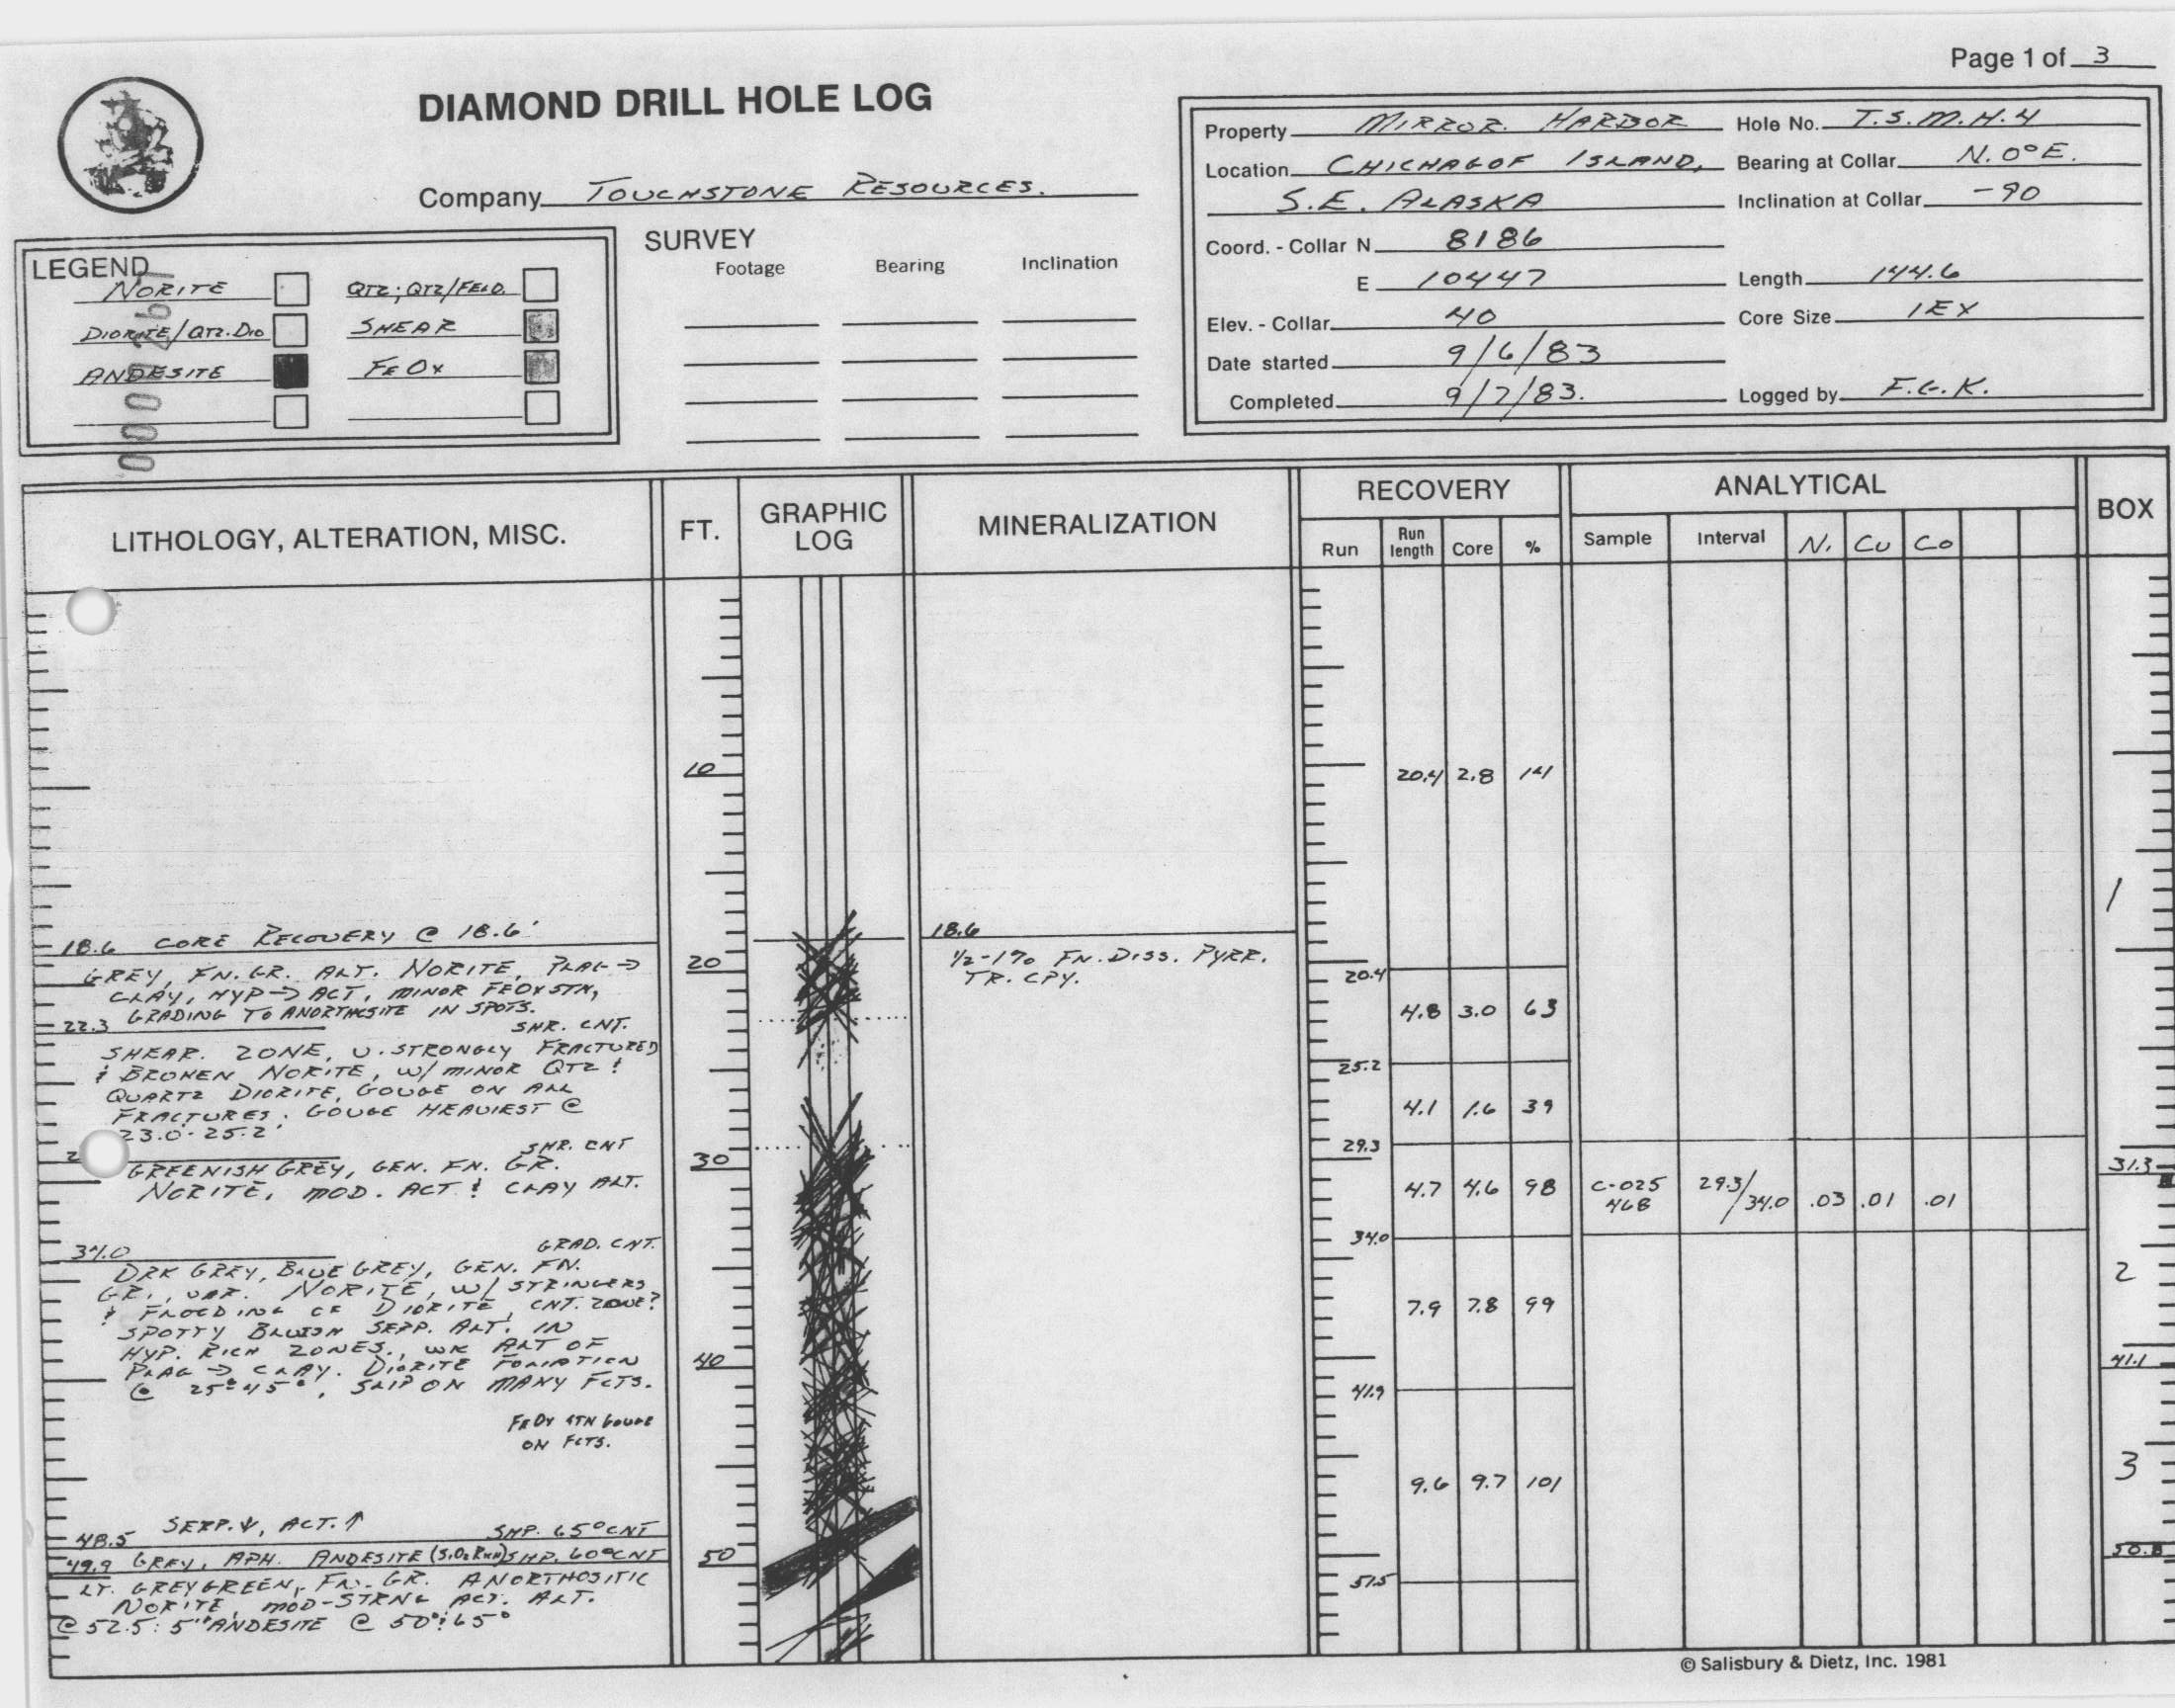 Page 1 of 3
DIAMOND DRILL HOLE LOG
Company TOUCHSTONE RESOURCES.
Property MIRROR HARBOR Hole No. T.S.M.H.4
Location CHICHAGOF ISLAND, Bearing at Collar N.0°E.
S.E. ALASKA Inclination at Collar -90
Coord. - Collar N 8186
E 10447 Length 144.6
Elev. - Collar 40 Core Size IEX
Date started 9/6/83
Completed 9/7/83. Logged by F.G.K.
LEGEND
NORITE QTZ; QTZ/FELD.
DIORITE/QTZ.DIO SHEAR
ANDESITE FEOX
SURVEY
Footage Bearing Inclination
LITHOLOGY, ALTERATION, MISC. FT. GRAPHIC LOG MINERALIZATION RECOVERY ANALYTICAL BOX
Run Run length Core % Sample Interval Ni Cu Co
10
20
30
40
50
18.6 CORE RECOVERY @ 18.6'
GREY, FN. GR. ALT. NORITE, PLAG→
CLAY, HYP→ACT, MINOR FEOX STN,
GRADING TO ANORTHOSITE IN SPOTS.
22.3 SHR. CNT.
SHEAR. ZONE, V. STRONGLY FRACTURED
& BROKEN NORITE, W/ MINOR QTZ &
QUARTZ DIORITE, GOUGE ON ALL
FRACTURES. GOUGE HEAVIEST @
23.0-25.2'
SHR. CNT
GREENISH GREY, GEN. FN. GR.
NORITE, MOD. ACT & CLAY ALT.
34.0 GRAD. CNT.
DRK GREY, BLUE GREY, GEN. FN.
GR., VAR. NORITE, W/ STRINGERS
& FLOODING OF DIORITE, CNT. ZONE?
SPOTTY BLUISH SERP. ALT. IN
HYP. RICH ZONES., WK ALT OF
PLAG → CLAY. DIORITE FOLIATION
@ 25°-45°, SLIP ON MANY FCTS.
FEOX STN GOUGE
ON FCTS.
SERP.↓, ACT.↑
48.5 SHP. 65° CNT
49.9 GREY, APH. ANDESITE (SiO2 RICH) SHP. 60° CNT
LT. GREYGREEN, FN. GR. ANORTHOSITIC
NORITE, MOD-STRNG ACT. ALT.
@ 52.5: 5" ANDESITE @ 50° & 65°
18.6
1/2-1% FN. DISS. PYRR.
TR. CPY.
20.4 2.8 14
20.4
4.8 3.0 63
25.2
4.1 1.6 39
29.3
4.7 4.6 98 C-025 468 29.3/34.0 .03 .01 .01
34.0
7.9 7.8 99
41.9
9.6 9.7 101
51.5
1
31.3
2
41.1
3
50.8
© Salisbury & Dietz, Inc. 1981